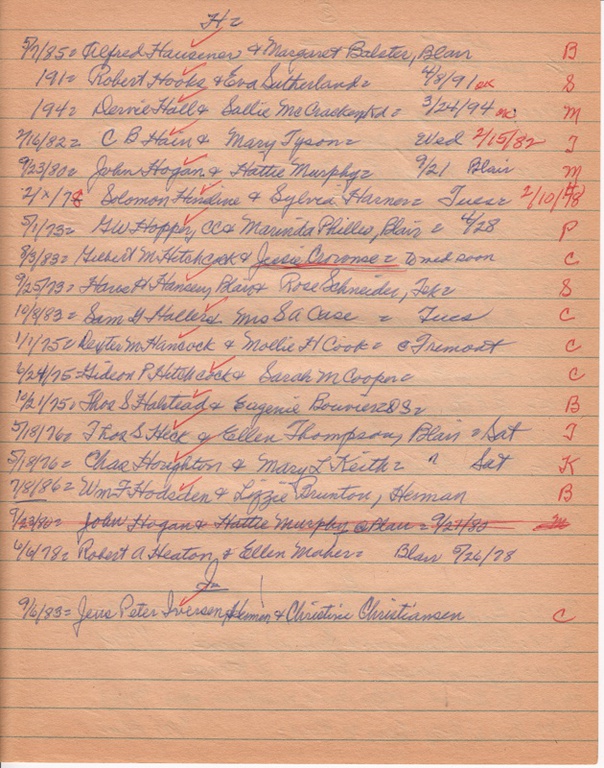 H=
5/7/85= Alfred Hausener & Margaret Balster, Blair B
191= Robert Hooks & Eva Sutherland= 4/8/91 ok S
194= Dervie Hall & Sallie McCracken, Kd= 3/24/94 M
2/16/82= C B Hain & Mary Tyson= Wed 2/15/82 T
9/23/80= John Hogan & Hattie Murphy= 9/21 Blair M
2/x/78 Solomon Herdine & Sylvia Harner= Tues= 2/10/78
5/1/73= GW Hopper, CC & Marinda Phillis, Blair = 4/28 P
8/3/83= Gilbert M Hitchcock & Jessie Crounse= to wed soon C
9/25/73= Hans H Hansen, Blair & Rose Schneider, Tek= S
10/8/83= Sam G Hallers Mrs S A Case = Tues C
1/1/75= Dexter M Hancock & Mollie H Cook= @ Fremont C
6/24/75= Gideon P Hitchcock & Sarah M Cooper= C
10/21/75= Thos S Halstead & Eugenie Bouvier B
5/18/76= Thos S Heck & Ellen Thompson, Blair = Sat T
5/18/76= Chas Houghton & Mary L Keith= " Sat K
7/8/86= Wm F Hodsden & Lizzie Brunton, Herman B
9/23/80= John Hogan & Hattie Murphy @ Blair = 9/21/80 M
6/6/78= Robert A Heaton & Ellen Maher= Blair 5/26/78
I=
9/6/83= Jens Peter Iversen, Herman & Christine Christiansen C